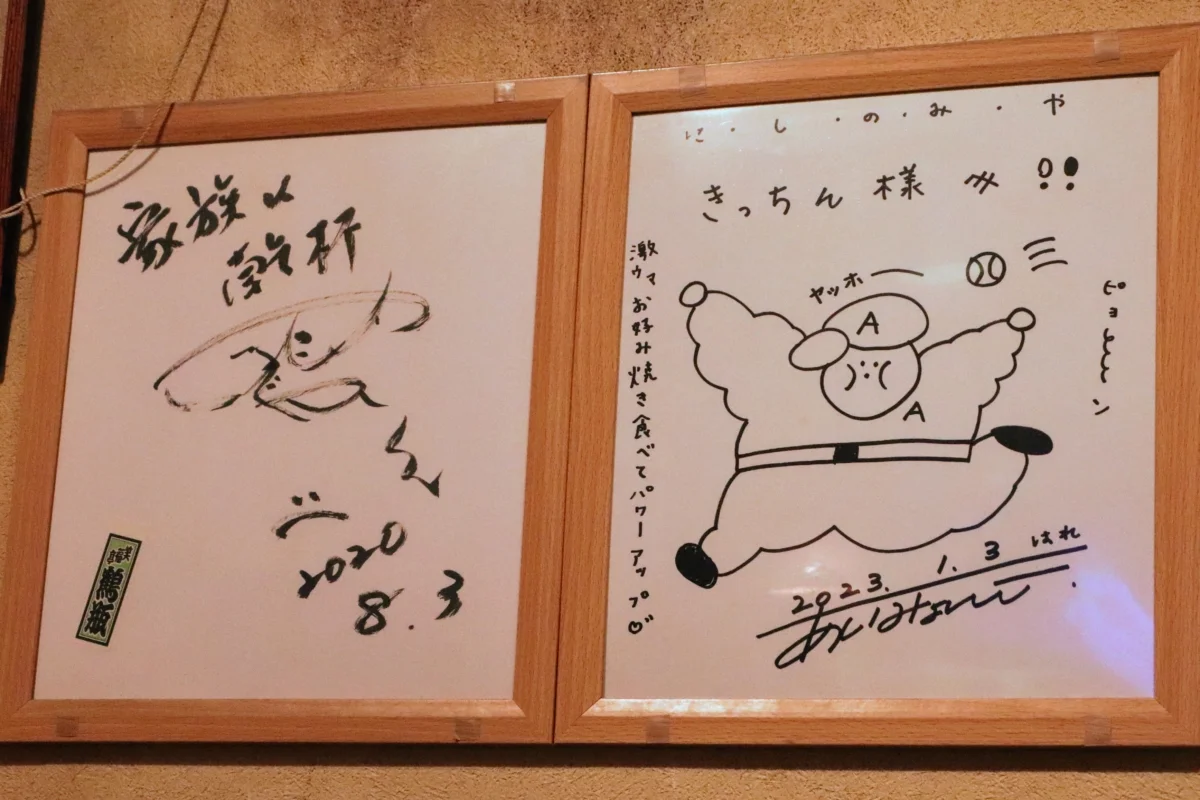 家族に
乾杯
2020
8.3
笑福亭
鶴瓶
に・し・の・み・や
きっちん様
激ウマお好み焼き食べてパワーアップ
ヤッホー
A
A
ピョーン
2023. 1. 3 はれ